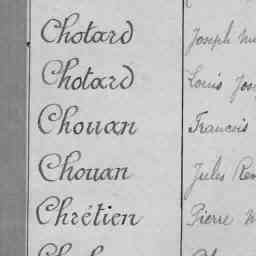 Chotard Joseph
Chotard Louis
Chouan Francois
Chouan Jules
Chrétien Pierre